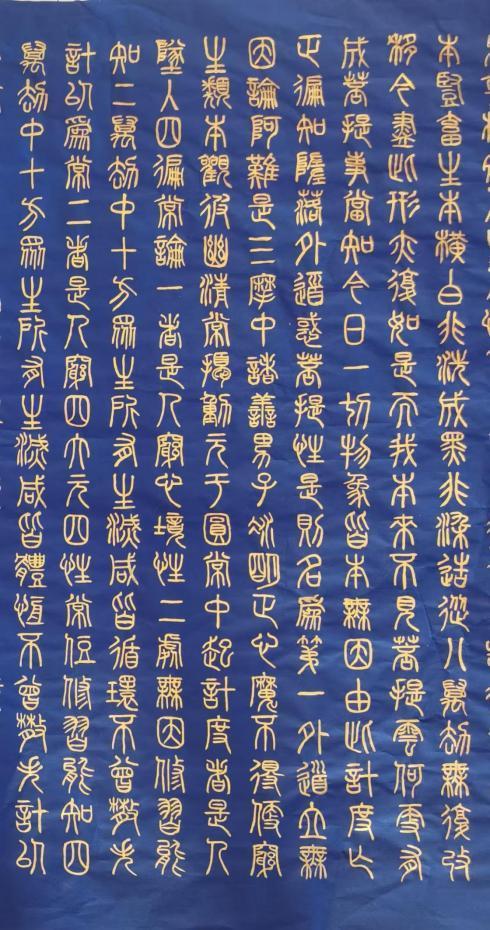 本豎畜生本橫白非洗成黑非染造從八萬劫無復改
移今盡此形亦復如是而我本來不見菩提雲何更有
成菩提事當知今日一切物象皆本無因由此計度亡
正徧知墮落外道惑菩提性是則名為第一外道立無
因論阿難是三摩中諸善男子凝明正心魔不得便窮
生類本觀彼幽清常擾動元于圓常中起計度者是人
墜入四徧常論一者是人窮心境性二處無因修習能
知二萬劫中十方眾生所有生滅咸皆循環不曾散失
計以為常二者是人窮四大元四性常住修習能知四
萬劫中十方眾生所有生滅咸皆體恆不曾散失計以